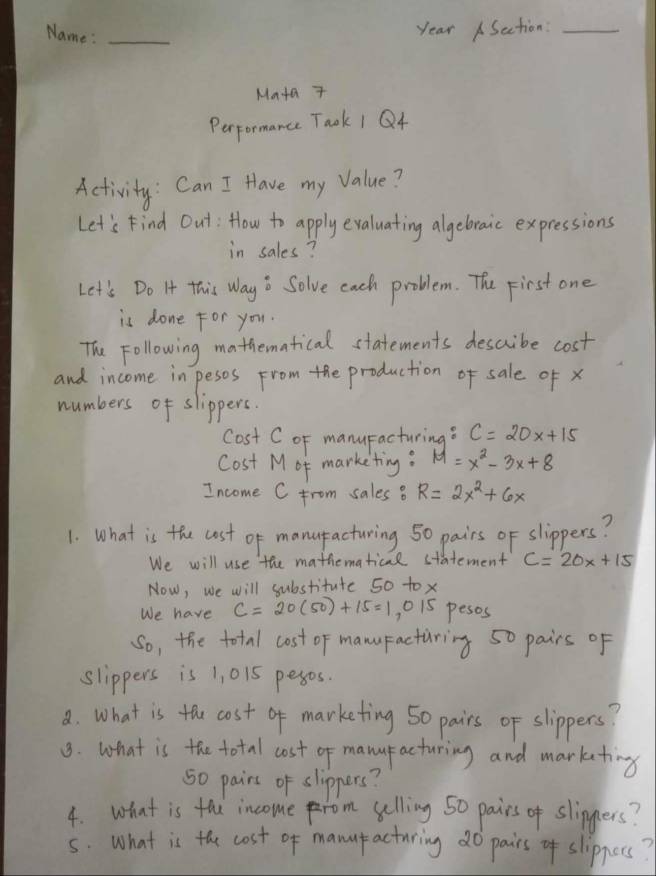 Name: ______ Year & Section: ______
Math 7
Performance Task 1 Q4
Activity: Can I Have my Value?
Let's Find Out: How to apply evaluating algebraic expressions
in sales?
Let's Do It this way: Solve each problem. The first one
is done for you.
The following mathematical statements describe cost
and income in pesos from the production of sale of x
numbers of slippers.
Cost C of manufacturing: C = 20x+15
Cost M of marketing: M = x² - 3x + 8
Income C from sales: R = 2x² + 6x
1. What is the cost of manufacturing 50 pairs of slippers?
We will use the mathematical statement C = 20x + 15
Now, we will substitute 50 to x
We have C = 20(50) + 15 = 1,015 pesos
So, the total cost of manufacturing 50 pairs of
slippers is 1,015 pesos.
2. What is the cost of marketing 50 pairs of slippers?
3. What is the total cost of manufacturing and marketing
50 pairs of slippers?
4. What is the income from selling 50 pairs of slippers?
5. What is the cost of manufacturing 20 pairs of slippers?